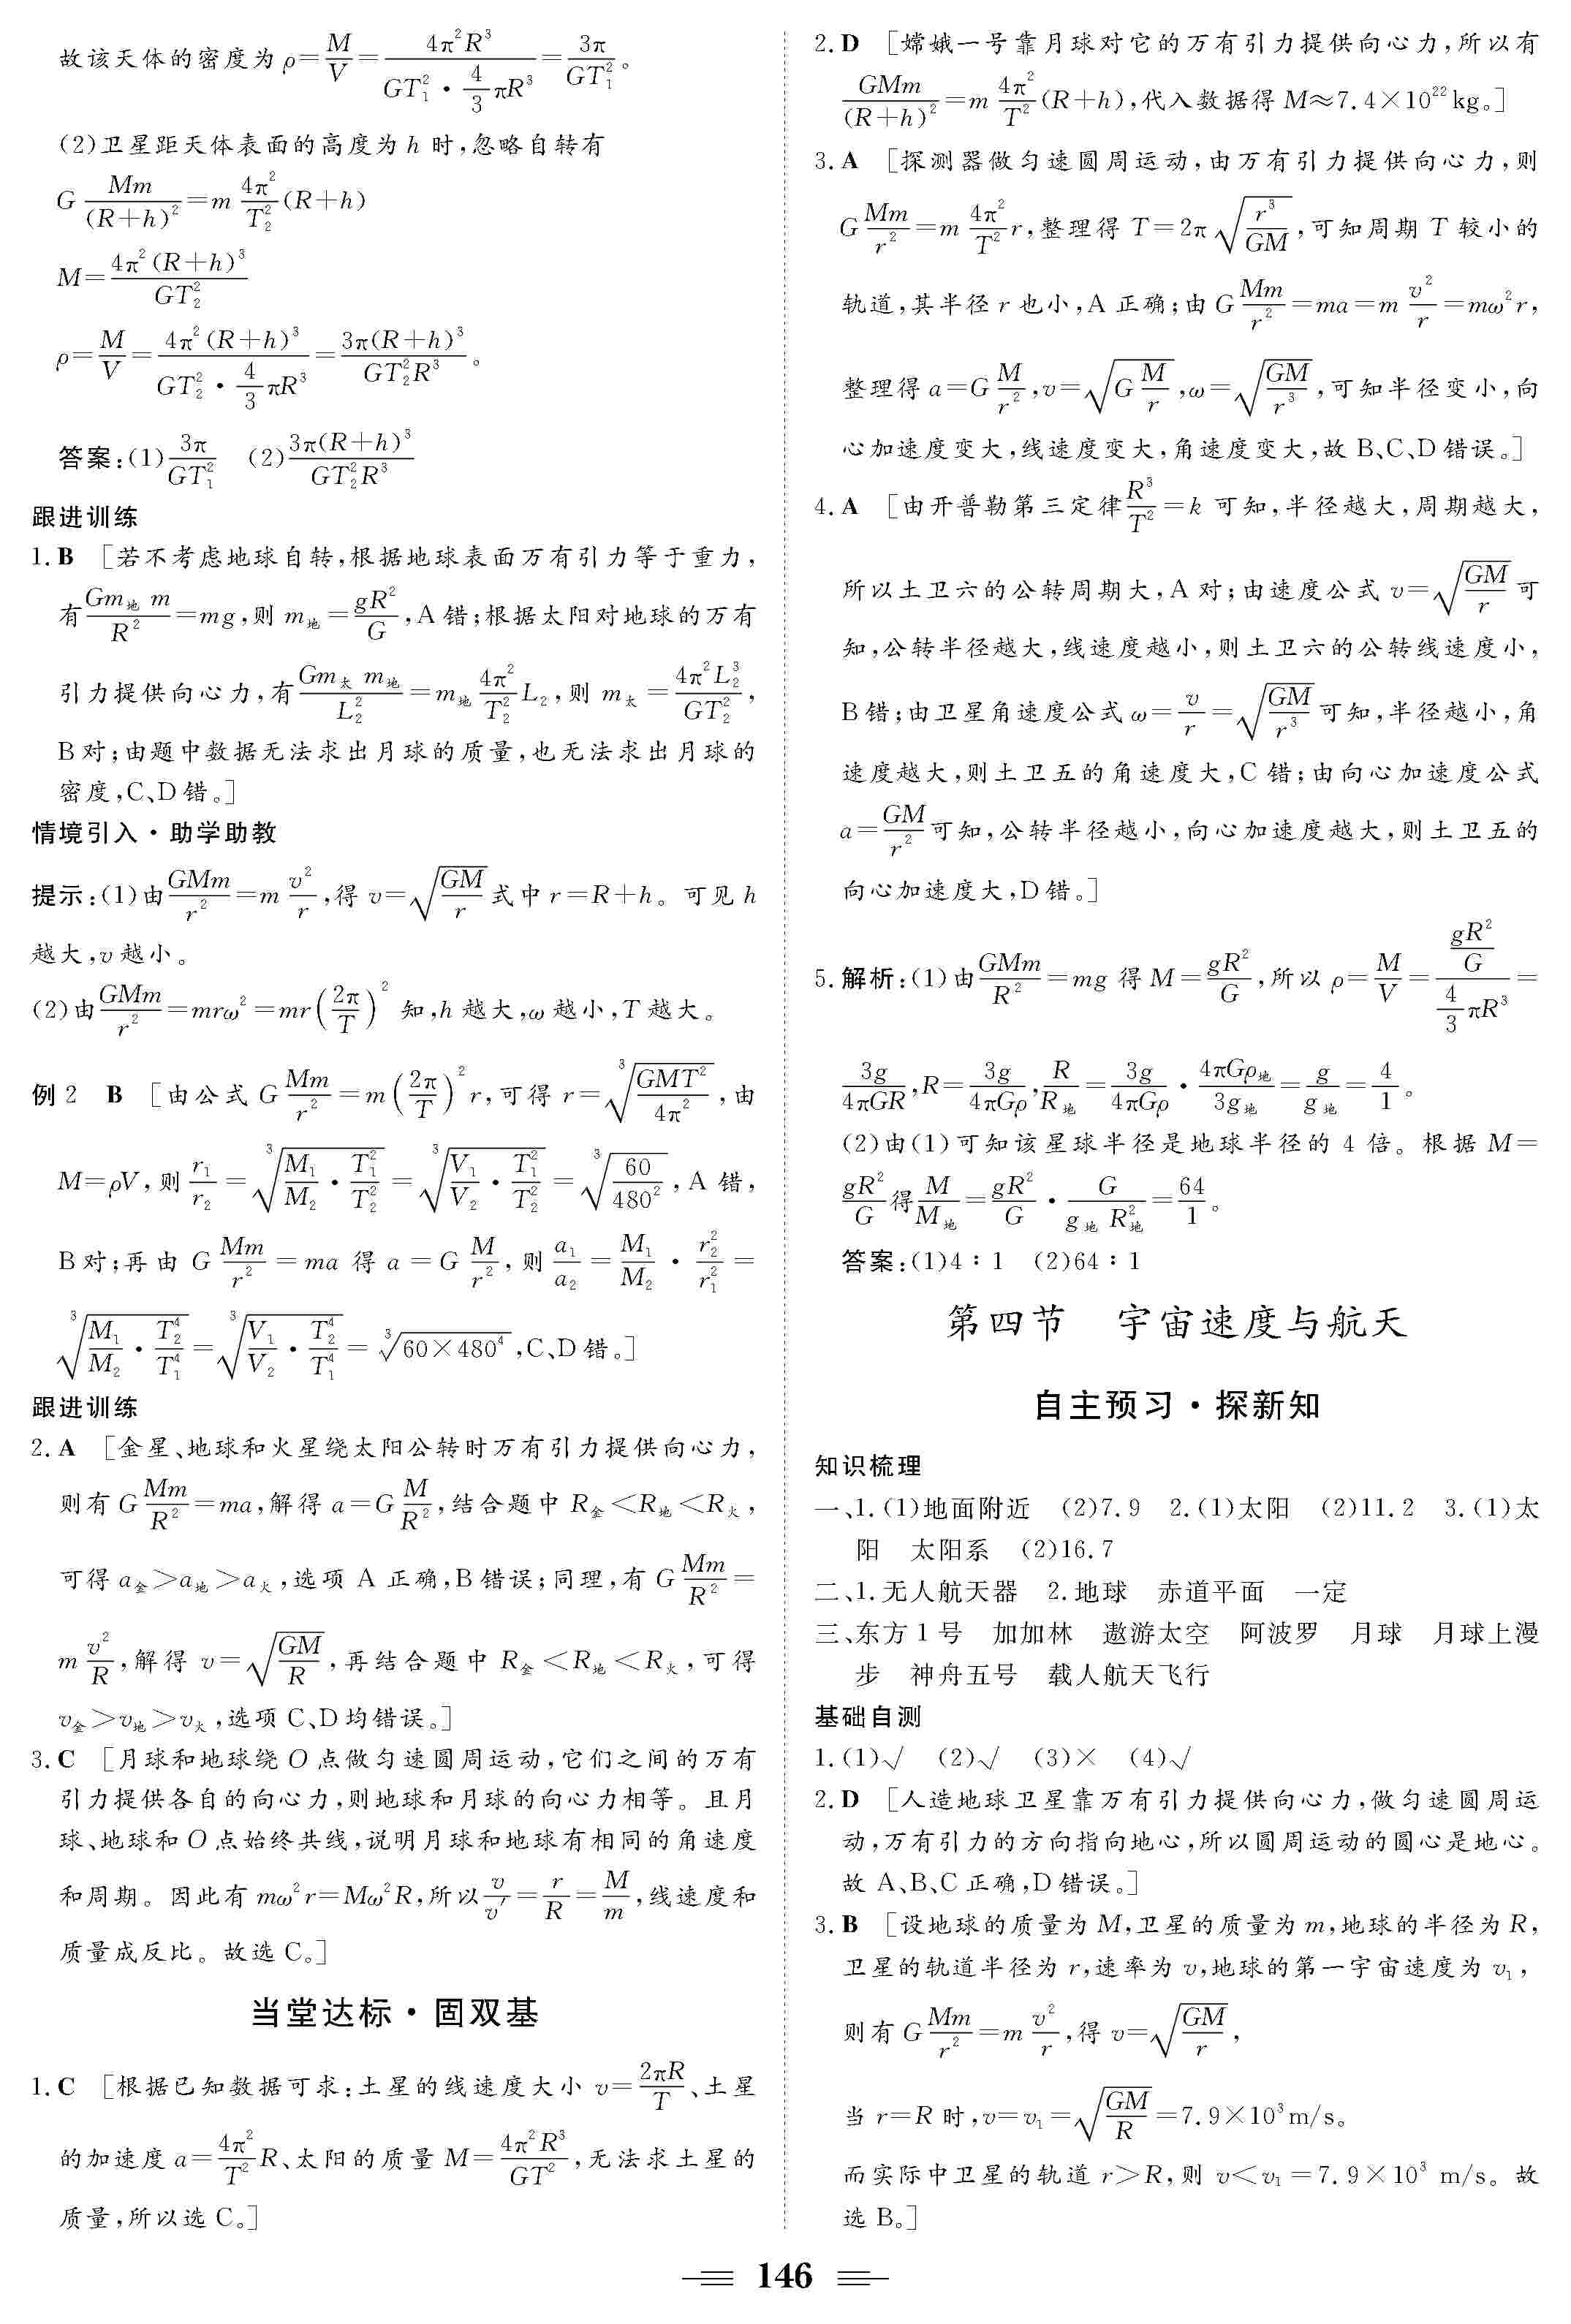 故该天体的密度为 ρ=M/V=4π²R³/(GT₁²·(4/3)πR³)=3π/(GT₁²)。
(2)卫星距天体表面的高度为 h 时,忽略自转有
G Mm/(R+h)²=m 4π²/T₂²(R+h)
M=4π²(R+h)³/(GT₂²)
ρ=M/V=4π²(R+h)³/(GT₂²·(4/3)πR³)=3π(R+h)³/(GT₂²R³)。
答案:(1)3π/(GT₁²) (2)3π(R+h)³/(GT₂²R³)
跟进训练
1.B [若不考虑地球自转,根据地球表面万有引力等于重力,
有Gm地m/R²=mg,则 m地=gR²/G,A 错;根据太阳对地球的万有
引力提供向心力,有Gm太m地/L₂²=m地 4π²/T₂² L₂,则 m太=4π²L₂³/(GT₂²),
B 对;由题中数据无法求出月球的质量,也无法求出月球的
密度,C、D 错。]
情境引入·助学助教
提示:(1)由GMm/r²=m v²/r,得 v=√(GM/r)式中 r=R+h。可见 h
越大,v 越小。
(2)由GMm/r²=mrω²=mr(2π/T)² 知,h 越大,ω 越小,T 越大。
例 2 B [由公式 G Mm/r²=m(2π/T)²r,可得 r=³√(GMT²/4π²),由
M=ρV,则 r₁/r₂=³√(M₁/M₂·T₁²/T₂²)=³√(V₁/V₂·T₁²/T₂²)=³√(60/480²),A 错,
B 对;再由 G Mm/r²=ma 得 a=G M/r²,则 a₁/a₂=M₁/M₂·r₂²/r₁²=
³√(M₁/M₂·T₂⁴/T₁⁴)=³√(V₁/V₂·T₂⁴/T₁⁴)=³√(60×480⁴),C、D 错。]
跟进训练
2.A [金星、地球和火星绕太阳公转时万有引力提供向心力,
则有 G Mm/R²=ma,解得 a=G M/R²,结合题中 R金<R地<R火,
可得 a金>a地>a火,选项 A 正确,B 错误;同理,有 G Mm/R²=
m v²/R,解得 v=√(GM/R),再结合题中 R金<R地<R火,可得
v金>v地>v火,选项 C、D 均错误。]
3.C [月球和地球绕 O 点做匀速圆周运动,它们之间的万有
引力提供各自的向心力,则地球和月球的向心力相等。且月
球、地球和 O 点始终共线,说明月球和地球有相同的角速度
和周期。因此有 mω²r=Mω²R,所以v/v′=r/R=M/m,线速度和
质量成反比。故选 C。]
当堂达标·固双基
1.C [根据已知数据可求:土星的线速度大小 v=2πR/T、土星
的加速度 a=4π²/T² R、太阳的质量 M=4π²R³/(GT²),无法求土星的
质量,所以选 C。]
2.D [嫦娥一号靠月球对它的万有引力提供向心力,所以有
GMm/(R+h)²=m 4π²/T²(R+h),代入数据得 M≈7.4×10²² kg。]
3.A [探测器做匀速圆周运动,由万有引力提供向心力,则
G Mm/r²=m 4π²/T² r,整理得 T=2π√(r³/GM),可知周期 T 较小的
轨道,其半径 r 也小,A 正确;由 G Mm/r²=ma=m v²/r=mω²r,
整理得 a=G M/r²,v=√(G M/r),ω=√(GM/r³),可知半径变小,向
心加速度变大,线速度变大,角速度变大,故 B、C、D 错误。]
4.A [由开普勒第三定律R³/T²=k 可知,半径越大,周期越大,
所以土卫六的公转周期大,A 对;由速度公式 v=√(GM/r)可
知,公转半径越大,线速度越小,则土卫六的公转线速度小,
B 错;由卫星角速度公式 ω=v/r=√(GM/r³)可知,半径越小,角
速度越大,则土卫五的角速度大,C 错;由向心加速度公式
a=GM/r²可知,公转半径越小,向心加速度越大,则土卫五的
向心加速度大,D 错。]
5.解析:(1)由GMm/R²=mg 得 M=gR²/G,所以 ρ=M/V=(gR²/G)/((4/3)πR³)=
3g/(4πGR),R=3g/(4πGρ),R/R地=3g/(4πGρ)·4πGρ地/(3g地)=g/g地=4/1。
(2)由(1)可知该星球半径是地球半径的 4 倍。根据 M=
gR²/G得M/M地=gR²/G·G/(g地R地²)=64/1。
答案:(1)4∶1 (2)64∶1
第四节 宇宙速度与航天
自主预习·探新知
知识梳理
一、1.(1)地面附近 (2)7.9 2.(1)太阳 (2)11.2 3.(1)太
阳 太阳系 (2)16.7
二、1.无人航天器 2.地球 赤道平面 一定
三、东方 1 号 加加林 遨游太空 阿波罗 月球 月球上漫
步 神舟五号 载人航天飞行
基础自测
1.(1)√ (2)√ (3)× (4)√
2.D [人造地球卫星靠万有引力提供向心力,做匀速圆周运
动,万有引力的方向指向地心,所以圆周运动的圆心是地心。
故 A、B、C 正确,D 错误。]
3.B [设地球的质量为 M,卫星的质量为 m,地球的半径为 R,
卫星的轨道半径为 r,速率为 v,地球的第一宇宙速度为 v₁,
则有 G Mm/r²=m v²/r,得 v=√(GM/r),
当 r=R 时,v=v₁=√(GM/R)=7.9×10³ m/s。
而实际中卫星的轨道 r>R,则 v<v₁=7.9×10³ m/s。故
选 B。]
146